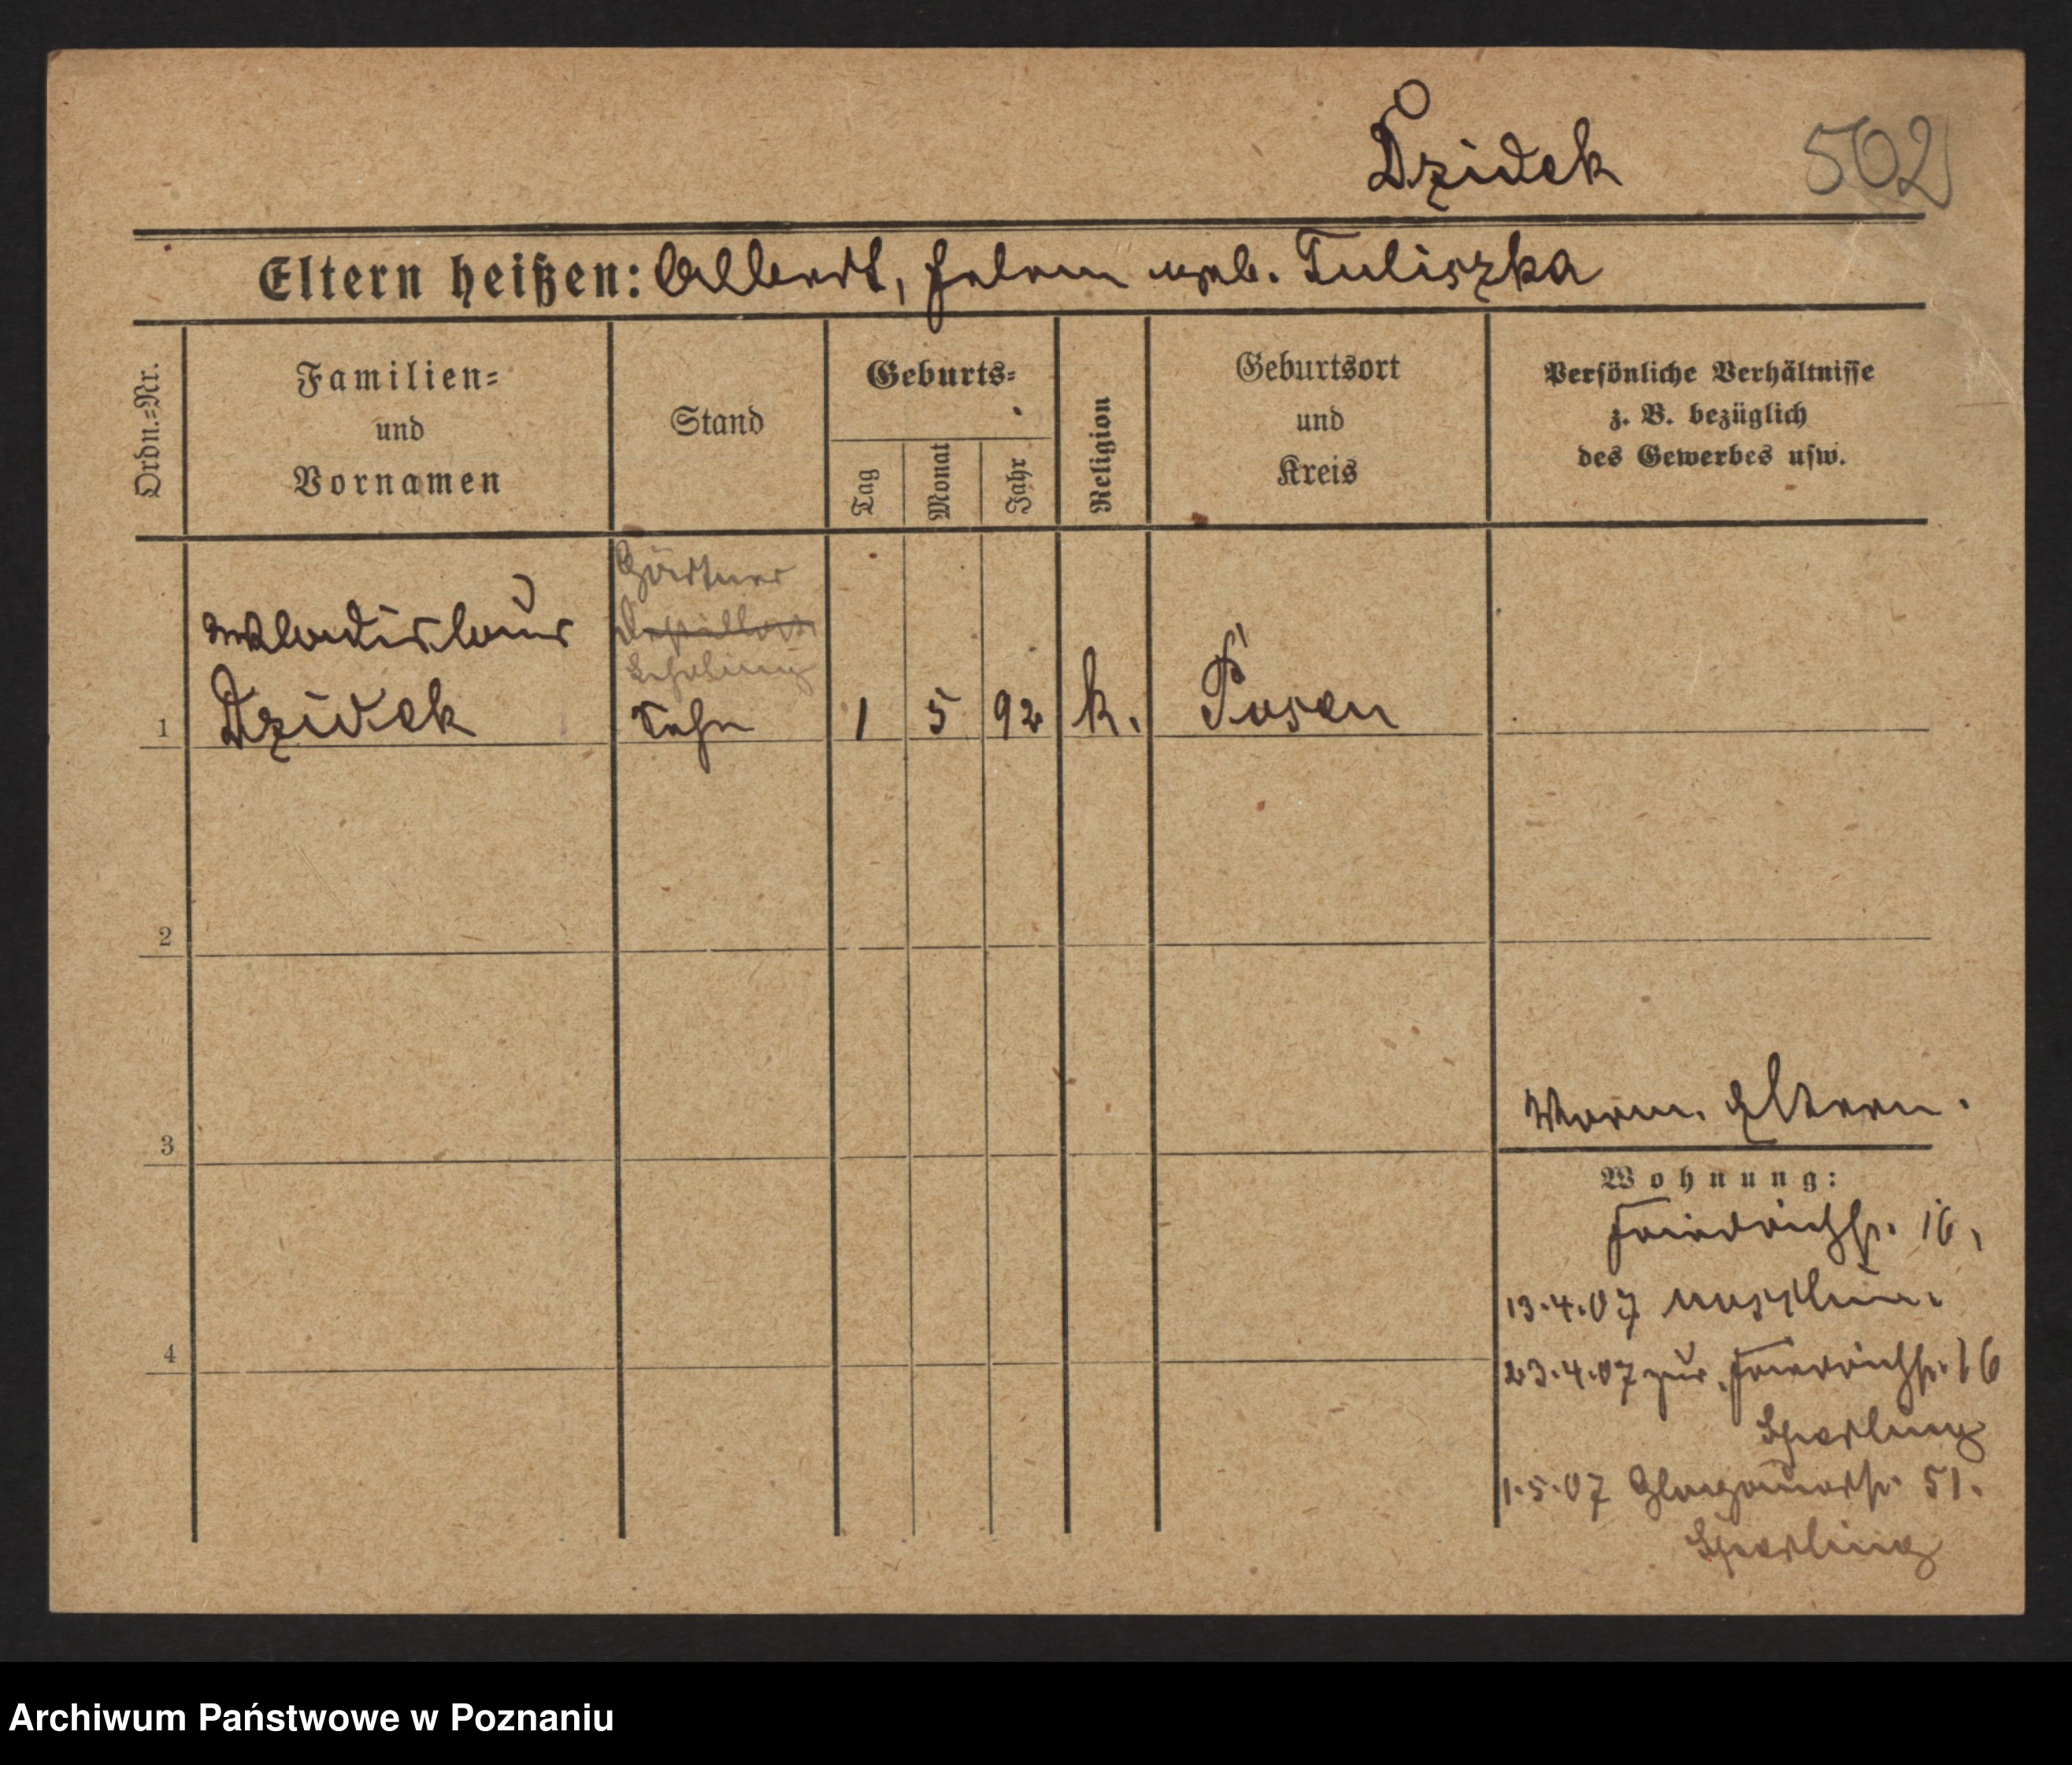 Dzidek 502
Eltern heißen: Albert, Helene geb. Tuliszka
Ordn.-Nr.
Familien-
und
Vornamen
Stand
Geburts-
Tag
Monat
Jahr
Religion
Geburtsort
und
Kreis
Persönliche Verhältnisse
z. B. bezüglich
des Gewerbes usw.
Gärtner
Wladislaus
Lehrling
1 Dzidek Sohn 1 5 92 k. Posen
2
Eltern.
3
Wohnung:
Friedrichstr. 16,
13.4.07
4
23.4.07 zur. Friedrichstr. 16
Sperling
1.5.07 Glogauerstr. 51.
Sperling
Archiwum Państwowe w Poznaniu